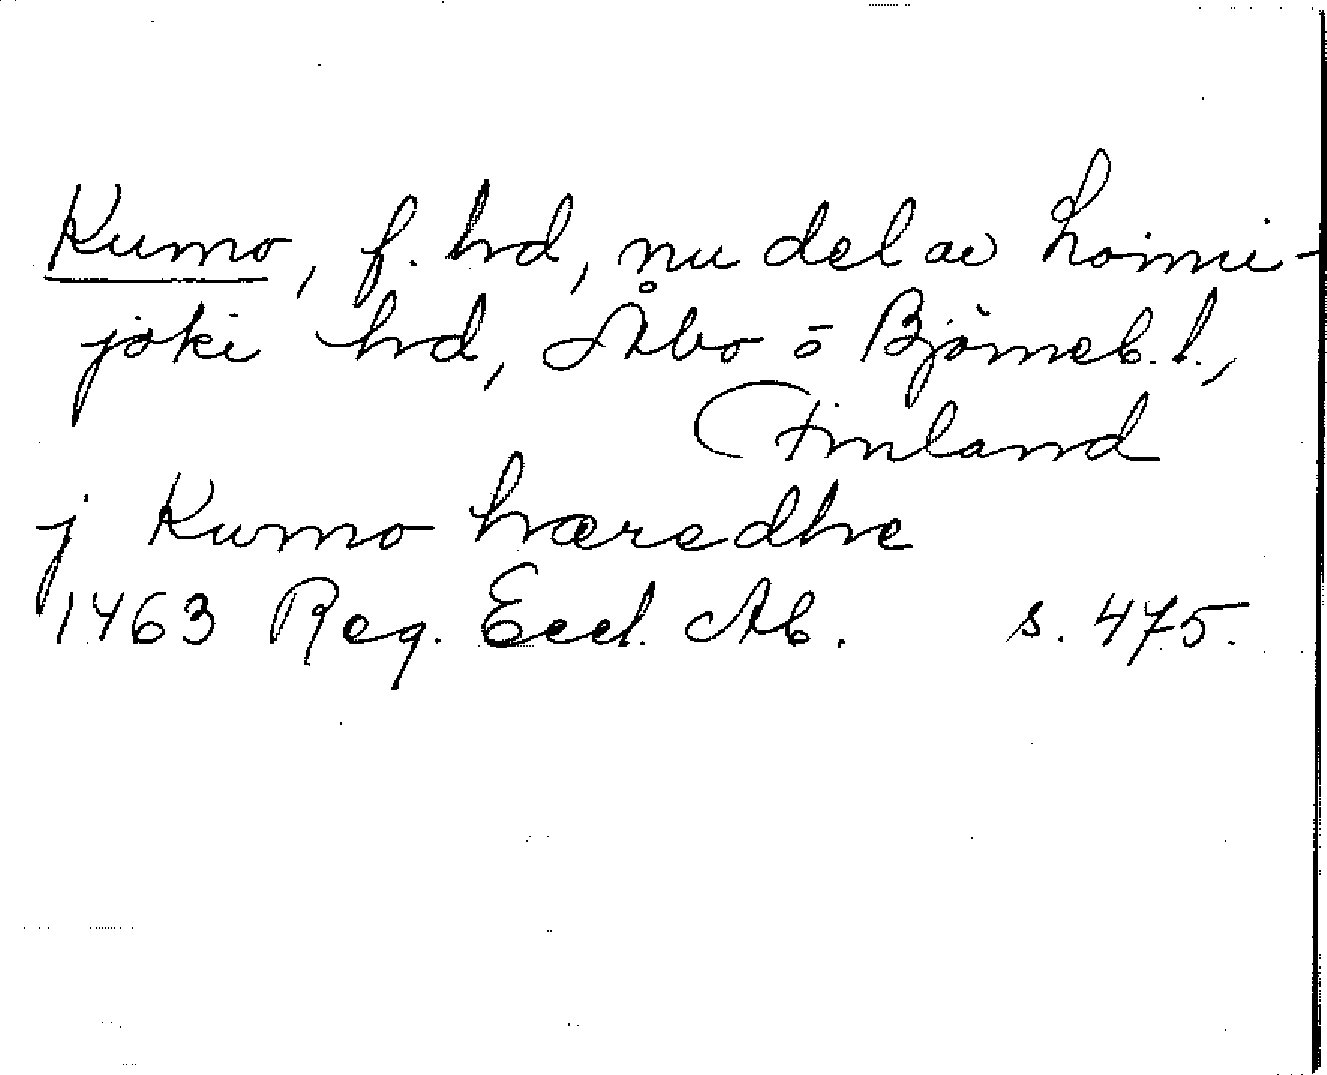 Kumo, f. hd, nu del av Loimi-
joki hd, Åbo o Björneb. l.,
Finland
j Kumo hæredhe
1463 Reg. Eccl. Ab. s. 475.